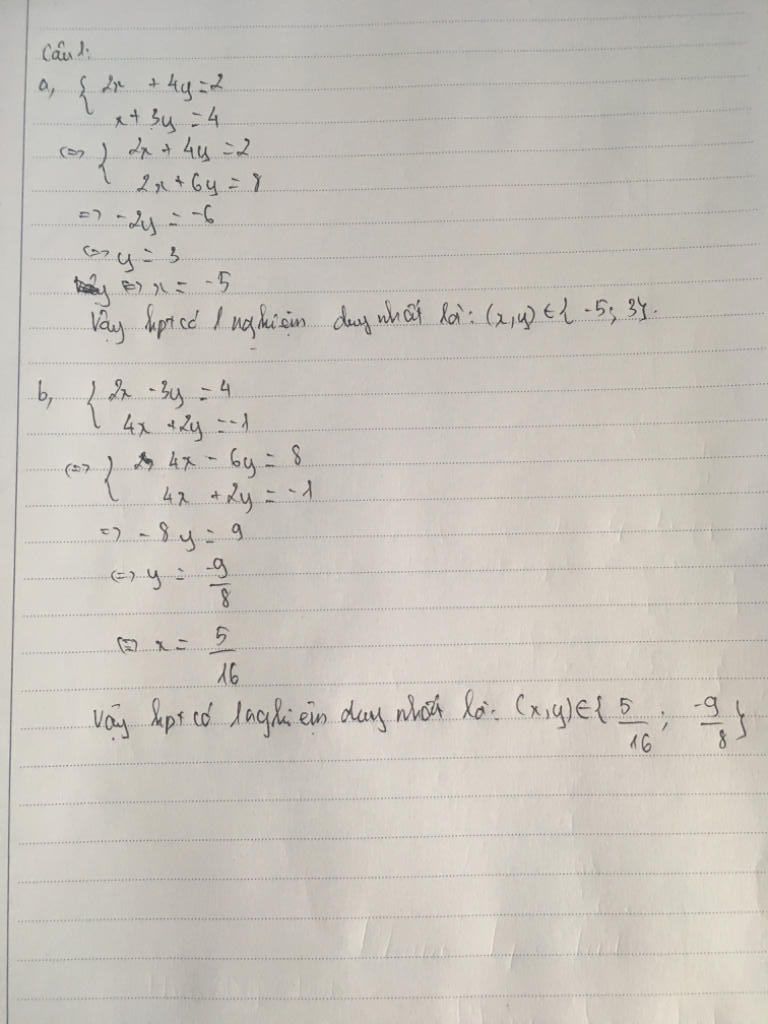 Câu 1:
a, { 2x + 4y = 2
x + 3y = 4
<=> { 2x + 4y = 2
2x + 6y = 8
=> -2y = -6
<=> y = 3
<=> x = -5
Vậy hpt có 1 nghiệm duy nhất là: (x,y) ∈ { -5; 3}.
b, { 2x - 3y = 4
4x + 2y = -1
<=> { 4x - 6y = 8
4x + 2y = -1
=> -8y = 9
<=> y = -9/8
<=> x = 5/16
Vậy hpt có 1 nghiệm duy nhất là: (x,y) ∈ { 5/16 ; -9/8 }